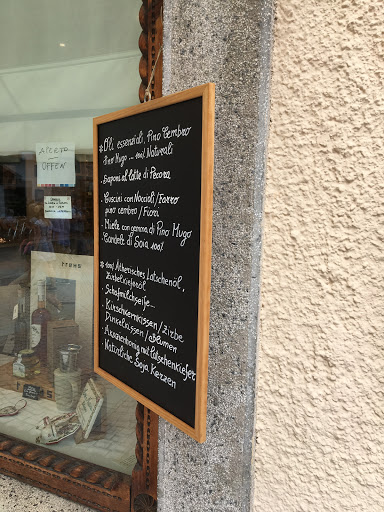 APERTO
OFFEN
*Oli essenziali, Pino Cembro
Pino Mugo ... 100% Naturali
• Saponi al latte di Pecora
• Cuscini con Noccioli/Farro
pino cembro/Fiori
• Miele con gemma di Pino Mugo
• Candele di Soia 100%
* 100% Ätherisches Latschenöl,
Zirbelkiefenöl
• Schafmilchseife
• Kirschkernkissen/Zirbe
Dinkelkissen/Blumen
• Ananashonig mit Latschenkiefer
• Natürliche Soja Kerzen